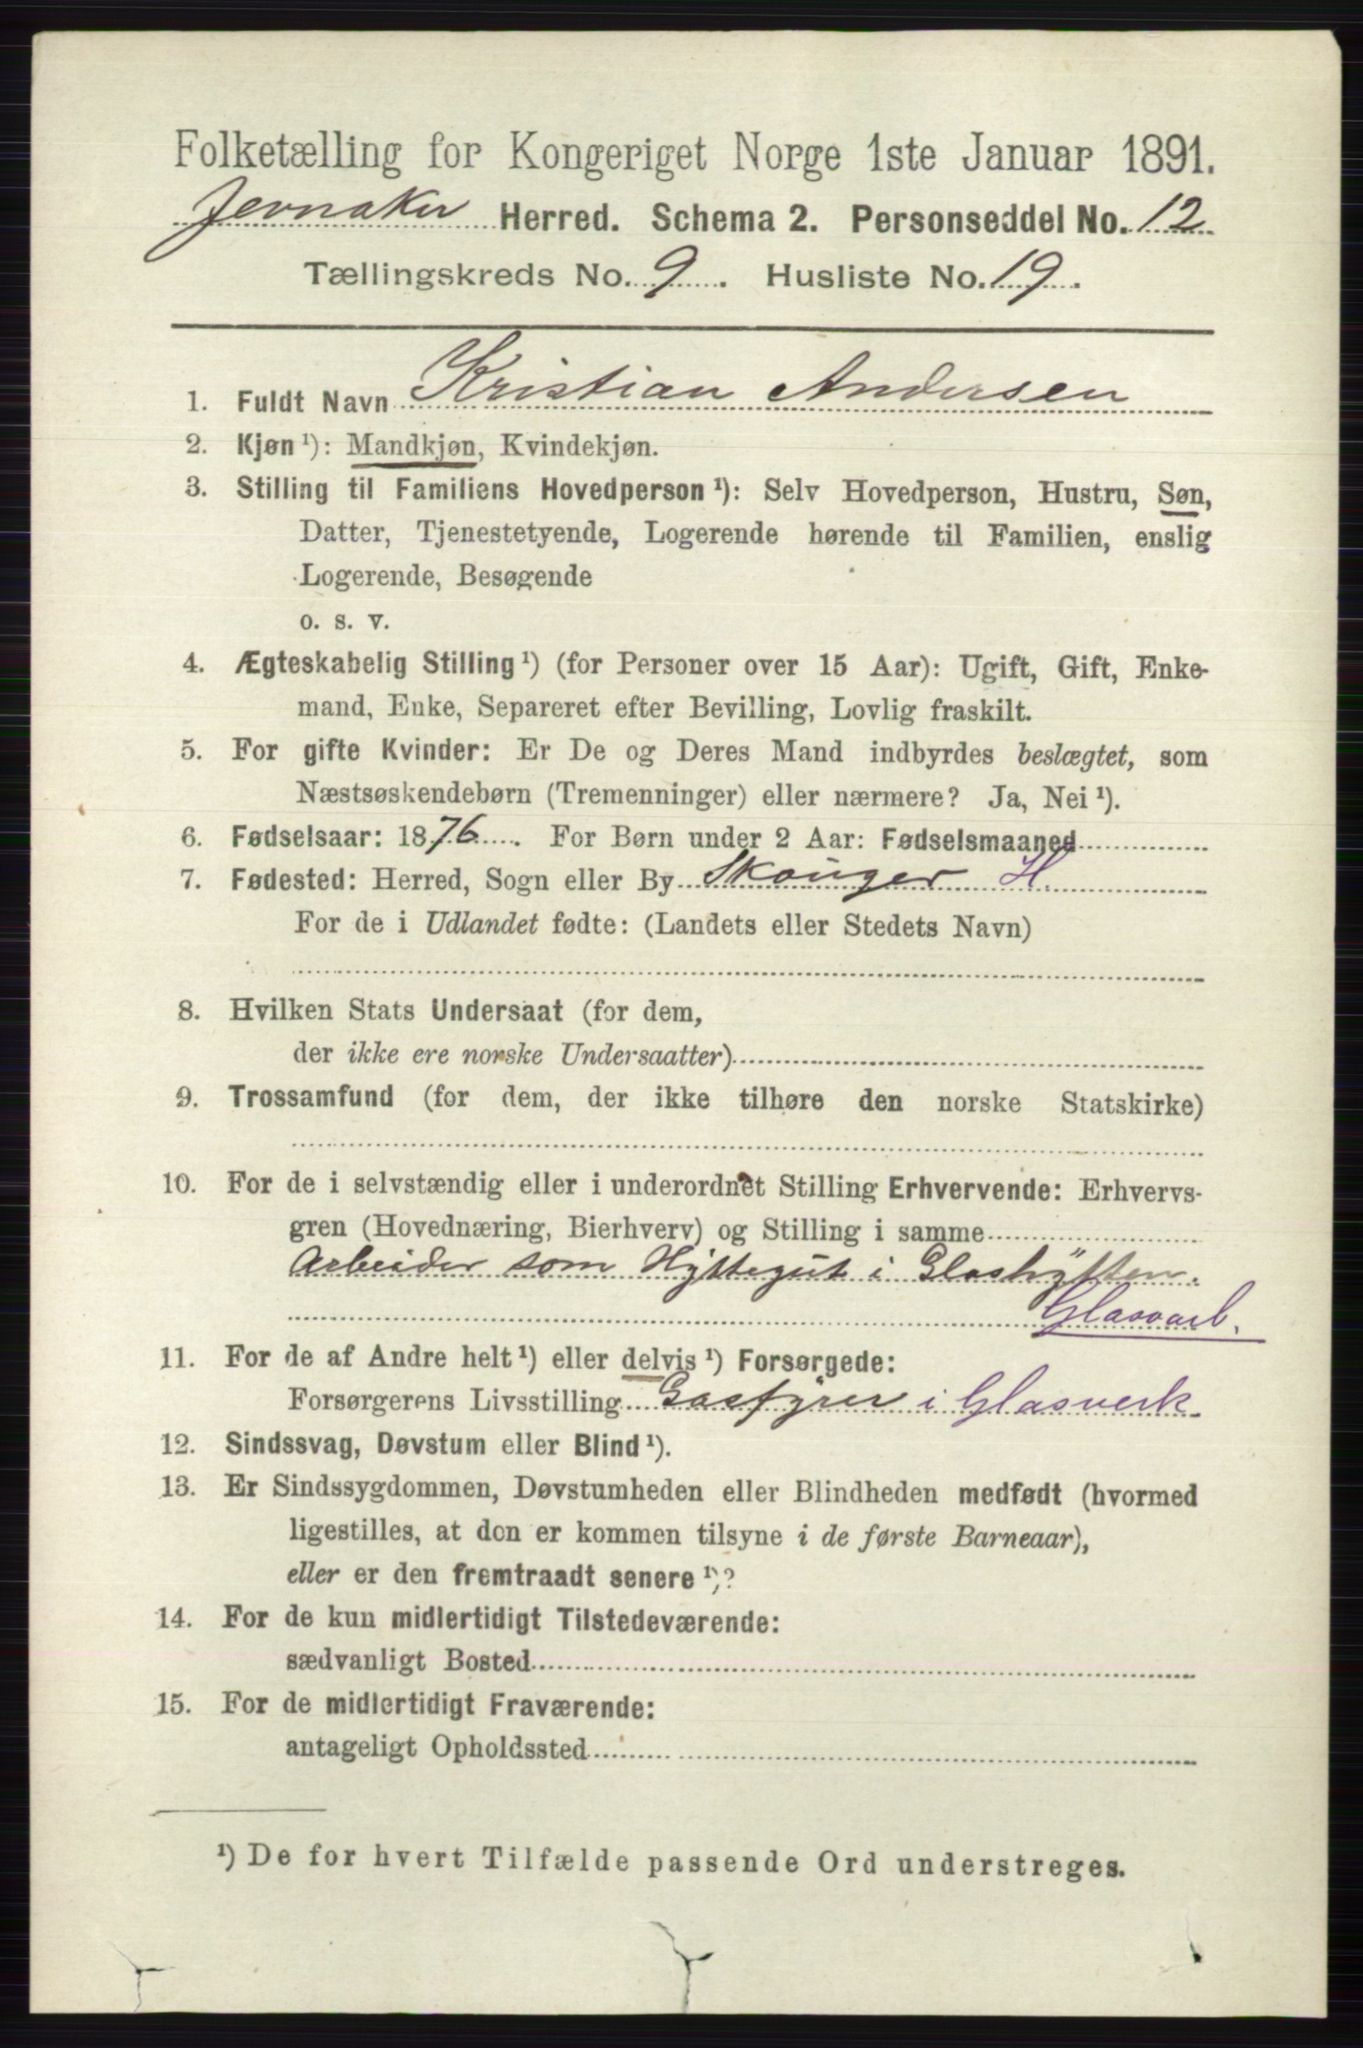 Folketælling for Kongeriget Norge 1ste Januar 1891.
Jevnaker Herred. Schema 2. Personseddel No. 12
Tællingskreds No. 9. Husliste No. 19.
1. Fuldt Navn Kristian Andersen
2. Kjøn ¹): Mandkjøn, Kvindekjøn.
3. Stilling til Familiens Hovedperson ¹): Selv Hovedperson, Hustru, Søn,
Datter, Tjenestetyende, Logerende hørende til Familien, enslig
Logerende, Besøgende
o. s. v.
4. Ægteskabelig Stilling ¹) (for Personer over 15 Aar): Ugift, Gift, Enke-
mand, Enke, Separeret efter Bevilling, Lovlig fraskilt.
5. For gifte Kvinder: Er De og Deres Mand indbyrdes beslægtet, som
Næstsøskendebørn (Tremenninger) eller nærmere? Ja, Nei ¹).
6. Fødselsaar: 1876. For Børn under 2 Aar: Fødselsmaaned
7. Fødested: Herred, Sogn eller By Skouger H.
For de i Udlandet fødte: (Landets eller Stedets Navn)
8. Hvilken Stats Undersaat (for dem,
der ikke ere norske Undersaatter)
9. Trossamfund (for dem, der ikke tilhøre den norske Statskirke)
10. For de i selvstændig eller i underordnet Stilling Erhvervende: Erhvervs-
gren (Hovednæring, Bierhverv) og Stilling i samme
Arbeider som Hyttegut i Glashytten.
Glasvarb.
11. For de af Andre helt ¹) eller delvis ¹) Forsørgede:
Forsørgerens Livsstilling Gasfyrer i Glasverk
12. Sindssvag, Døvstum eller Blind ¹).
13. Er Sindssygdommen, Døvstumheden eller Blindheden medfødt (hvormed
ligestilles, at den er kommen tilsyne i de første Barneaar),
eller er den fremtraadt senere ¹)?
14. For de kun midlertidigt Tilstedeværende:
sædvanligt Bosted
15. For de midlertidigt Fraværende:
antageligt Opholdssted
¹) De for hvert Tilfælde passende Ord understreges.